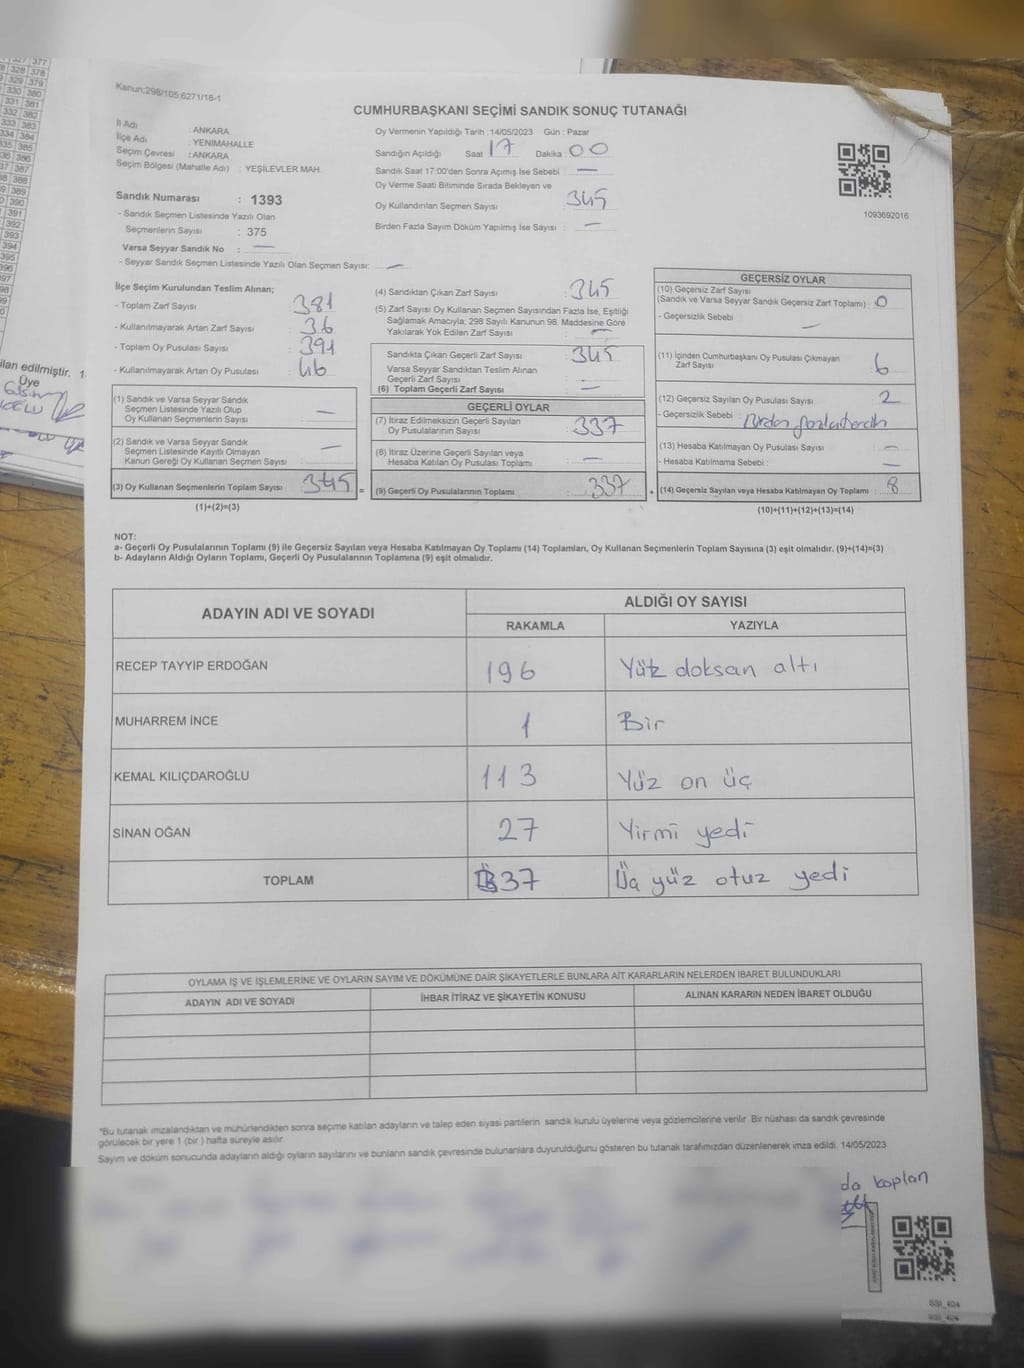 Kanun;298/105;6271/18-1
CUMHURBAŞKANI SEÇİMİ SANDIK SONUÇ TUTANAĞI
İl Adı : ANKARA
İlçe Adı : YENİMAHALLE
Seçim Çevresi : ANKARA
Seçim Bölgesi (Mahalle Adı) : YEŞİLEVLER MAH.
Sandık Numarası : 1393
- Sandık Seçmen Listesinde Yazılı Olan
Seçmenlerin Sayısı : 375
Varsa Seyyar Sandık No : —
- Seyyar Sandık Seçmen Listesinde Yazılı Olan Seçmen Sayısı: —
Oy Vermenin Yapıldığı Tarih : 14/05/2023 Gün : Pazar
Sandığın Açıldığı Saat 17 Dakika : 00
Sandık Saat 17:00'den Sonra Açımış İse Sebebi : —
Oy Verme Saati Bitiminde Sırada Bekleyen ve
Oy Kullandırılan Seçmen Sayısı : 345
Birden Fazla Sayım Döküm Yapılmış İse Sayısı : —
1093692016
İlçe Seçim Kurulundan Teslim Alınan;
- Toplam Zarf Sayısı : 381
- Kullanılmayarak Artan Zarf Sayısı : 36
- Toplam Oy Pusulası Sayısı : 391
- Kullanılmayarak Artan Oy Pusulası : 46
(1) Sandık ve Varsa Seyyar Sandık
Seçmen Listesinde Yazılı Olup
Oy Kullanan Seçmenlerin Sayısı : —
(2) Sandık ve Varsa Seyyar Sandık
Seçmen Listesinde Kayıtlı Olmayan
Kanun Gereği Oy Kullanan Seçmen Sayısı : —
(3) Oy Kullanan Seçmenlerin Toplam Sayısı : 345 =
(1)+(2)=(3)
(4) Sandıktan Çıkan Zarf Sayısı : 345
(5) Zarf Sayısı Oy Kullanan Seçmen Sayısından Fazla İse, Eşitliği
Sağlamak Amacıyla, 298 Sayılı Kanunun 98. Maddesine Göre
Yakılarak Yok Edilen Zarf Sayısı : —
Sandıkta Çıkan Geçerli Zarf Sayısı : 345
Varsa Seyyar Sandıktan Teslim Alınan
Geçerli Zarf Sayısı : —
(6) Toplam Geçerli Zarf Sayısı : —
GEÇERLİ OYLAR
(7) İtiraz Edilmeksizin Geçerli Sayılan
Oy Pusulalarının Sayısı : 337
(8) İtiraz Üzerine Geçerli Sayılan veya
Hesaba Katılan Oy Pusulası Toplamı : —
(9) Geçerli Oy Pusulalarının Toplamı : 337 +
GEÇERSİZ OYLAR
(10) Geçersiz Zarf Sayısı
(Sandık ve Varsa Seyyar Sandık Geçersiz Zarf Toplamı) : 0
- Geçersizlik Sebebi : —
(11) İçinden Cumhurbaşkanı Oy Pusulası Çıkmayan
Zarf Sayısı : 6
(12) Geçersiz Sayılan Oy Pusulası Sayısı : 2
- Geçersizlik Sebebi : Birden fazla tercih
(13) Hesaba Katılmayan Oy Pusulası Sayısı : —
- Hesaba Katılmama Sebebi : —
(14) Geçersiz Sayılan veya Hesaba Katılmayan Oy Toplamı : 8
(10)+(11)+(12)+(13)=(14)
NOT:
a- Geçerli Oy Pusulalarının Toplamı (9) ile Geçersiz Sayılan veya Hesaba Katılmayan Oy Toplamı (14) Toplamları, Oy Kullanan Seçmenlerin Toplam Sayısına (3) eşit olmalıdır. (9)+(14)=(3)
b- Adayların Aldığı Oyların Toplamı, Geçerli Oy Pusulalarının Toplamına (9) eşit olmalıdır.
ADAYIN ADI VE SOYADI ALDIĞI OY SAYISI
RAKAMLA YAZIYLA
RECEP TAYYİP ERDOĞAN 196 Yüz doksan altı
MUHARREM İNCE 1 Bir
KEMAL KILIÇDAROĞLU 113 Yüz on üç
SİNAN OĞAN 27 Yirmi yedi
TOPLAM 337 Üç yüz otuz yedi
OYLAMA İŞ VE İŞLEMLERİNE VE OYLARIN SAYIM VE DÖKÜMÜNE DAİR ŞİKAYETLERLE BUNLARA AİT KARARLARIN NELERDEN İBARET BULUNDUKLARI
ADAYIN ADI VE SOYADI İHBAR İTİRAZ VE ŞİKAYETİN KONUSU ALINAN KARARIN NEDEN İBARET OLDUĞU
*Bu tutanak imzalandıktan ve mühürlendikten sonra seçime katılan adayların ve talep eden siyasi partilerin sandık kurulu üyelerine veya gözlemcilerine verilir. Bir nüshası da sandık çevresinde
görülecek bir yere 1 (bir ) hafta süreyle asılır.
Sayım ve döküm sonucunda adayların aldığı oyların sayılarını ve bunların sandık çevresinde bulunanlara duyurulduğunu gösteren bu tutanak tarafımızdan düzenlenerek imza edildi. 14/05/2023
da koplan